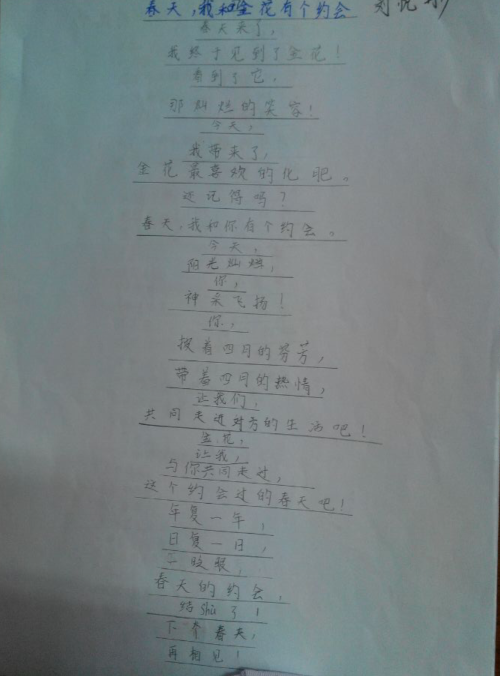 春天，我和金花有个约会 刘悦
春天来了，
我终于见到了金花！
看到了它，
那灿烂的笑容！
今天，
我带来了，
金花最喜欢的化肥。
还记得吗？
春天，我和你有个约会。
今天，
阳光灿烂，
你，
神采飞扬！
你，
披着四月的芬芳，
带着四月的热情，
让我们，
共同走进对方的生活吧！
金花，
让我，
与你共同走过，
这个约会过的春天吧！
年复一年，
日复一日，
一眨眼，
春天的约会，
结shù了！
下个春天，
再相见！